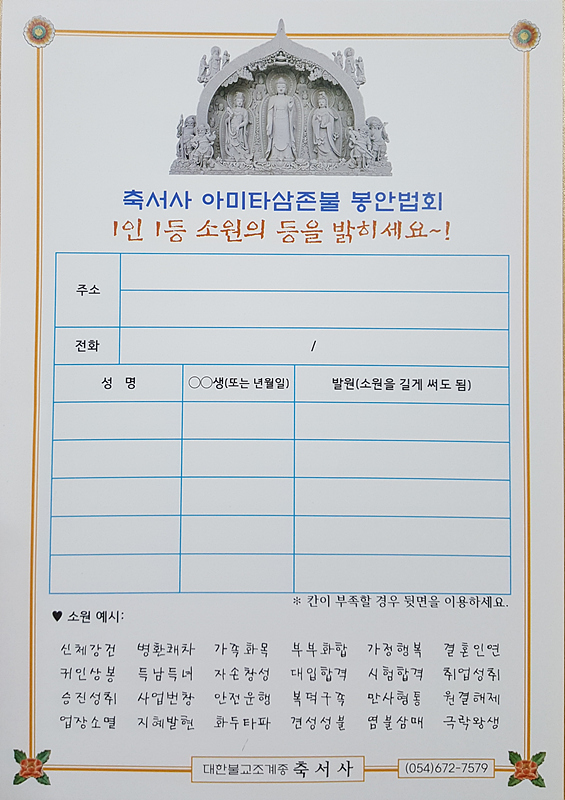 축서사 아미타삼존불 봉안법회
1인 1등 소원의 등을 밝히세요~!
주소
전화 /
성 명 ○○생(또는 년월일) 발원(소원을 길게 써도 됨)
※ 칸이 부족할 경우 뒷면을 이용하세요.
♥ 소원 예시:
신체강건 병환쾌차 가족화목 부부화합 가정행복 결혼인연
귀인상봉 득남득녀 자손창성 대입합격 시험합격 취업성취
승진성취 사업번창 안전운행 복덕구족 만사형통 원결해제
업장소멸 지혜발현 화두타파 견성성불 염불삼매 극락왕생
대한불교조계종 축서사 (054)672-7579